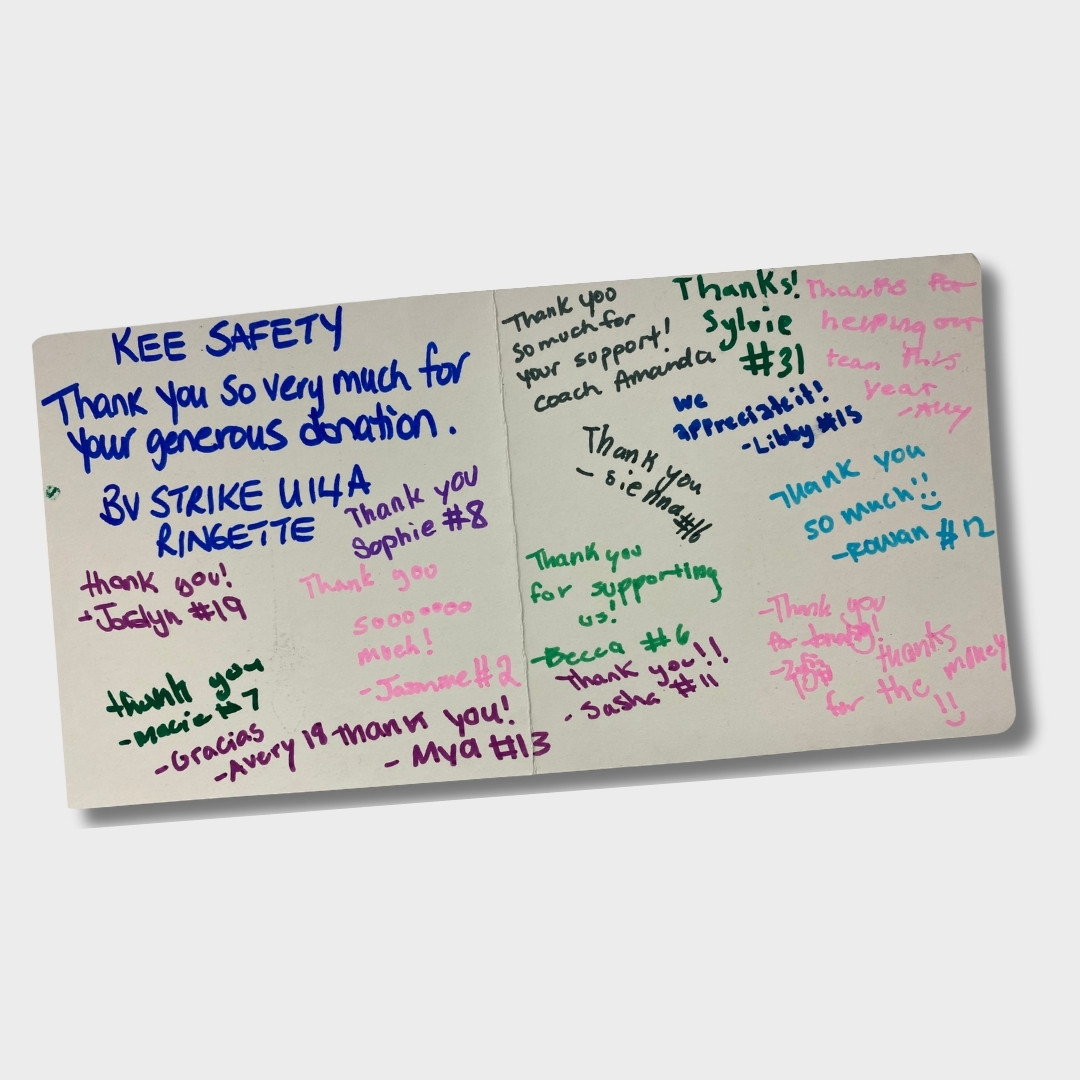 KEE SAFETY
Thank you so very much for
your generous donation.
BV STRIKE U14A
RINGETTE
Thank you
Sophie #8
thank you!
-Jocelyn #19
Thank you
soooooo
much!
-Jasmine #2
thank you
-macie #7
-Gracias
-Avery 18
Thank you!
- Mya #13
Thank you
so much for
your support!
coach Amanda
Thanks!
Sylvie
#31
Thanks for
helping our
team this
year
-Ally
we
appreciate it!
-Libby #15
Thank you
- sienna #16
Thank you
so much!!
-Rowan #12
Thank you
for supporting
us!
-Becca #6
Thank you!!
- Sasha #11
-Thank you
for
thanks
for the money
!!